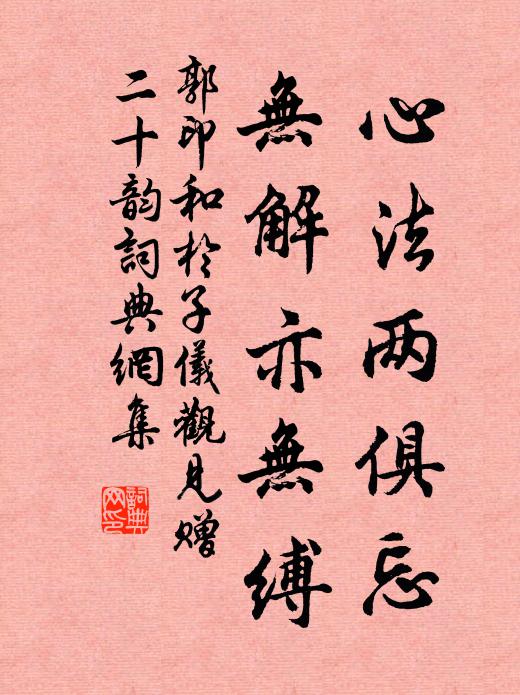 心法两俱忘
無解亦無縛
郭印和於子儀觀見贈
二十韵詞典網集
詞典
网印